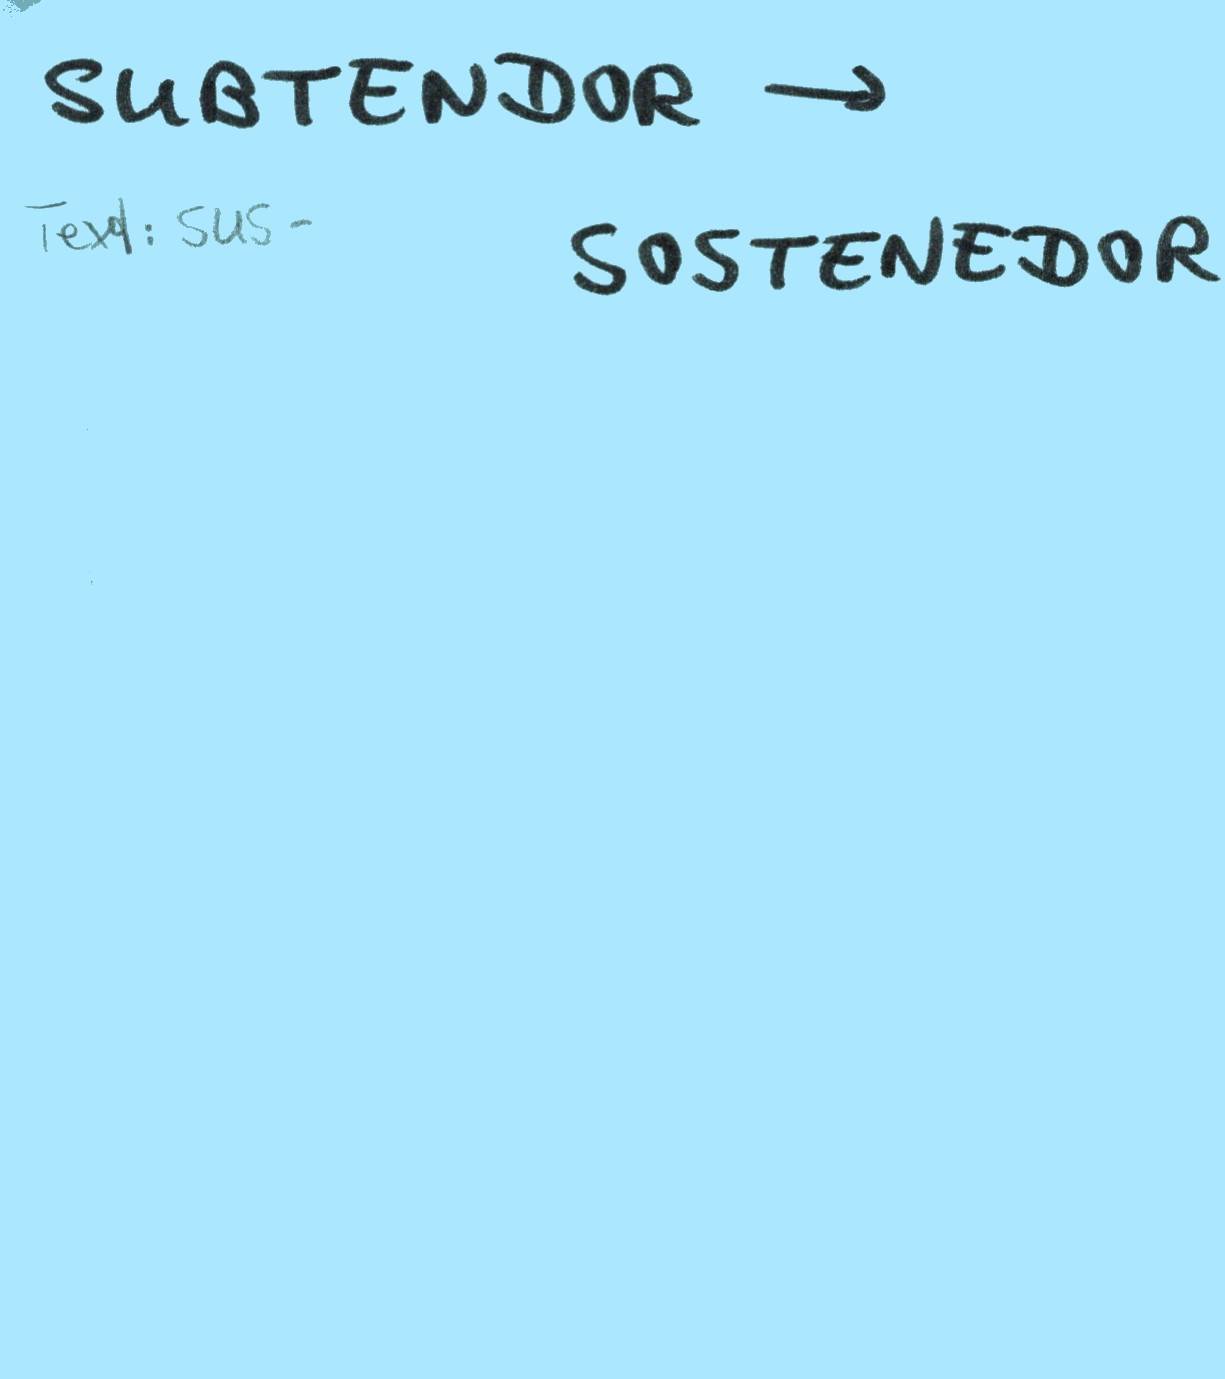 SUBTENDOR →
Text: SUS-
SOSTENEDOR